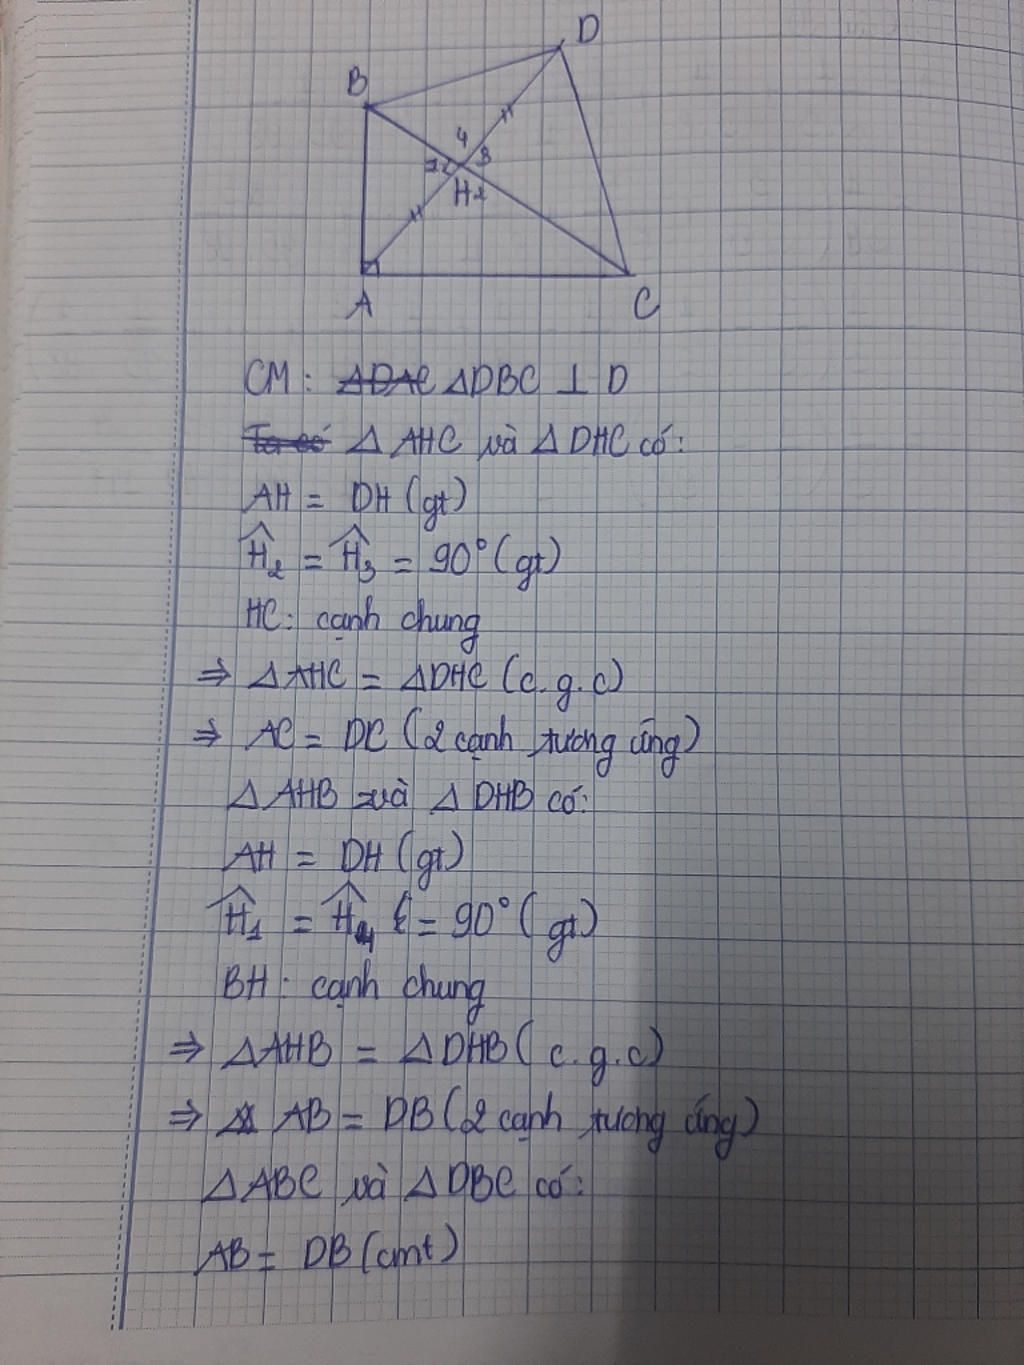 D
B
4
1 3
H 2
A C
CM: ΔDAC ΔDBC ⊥ D
Ta có Δ AHC và Δ DHC có:
AH = DH (gt)
Ĥ₂ = Ĥ₃ = 90° (gt)
HC: cạnh chung
⇒ Δ AHC = ΔDHC (c.g.c)
⇒ AC = DC (2 cạnh tương ứng)
Δ AHB và Δ DHB có:
AH = DH (gt)
Ĥ₁ = Ĥ₄ = 90° (gt)
BH: cạnh chung
⇒ ΔAHB = ΔDHB (c.g.c)
⇒ AB = DB (2 cạnh tương ứng)
ΔABC và ΔDBC có:
AB = DB (cmt)